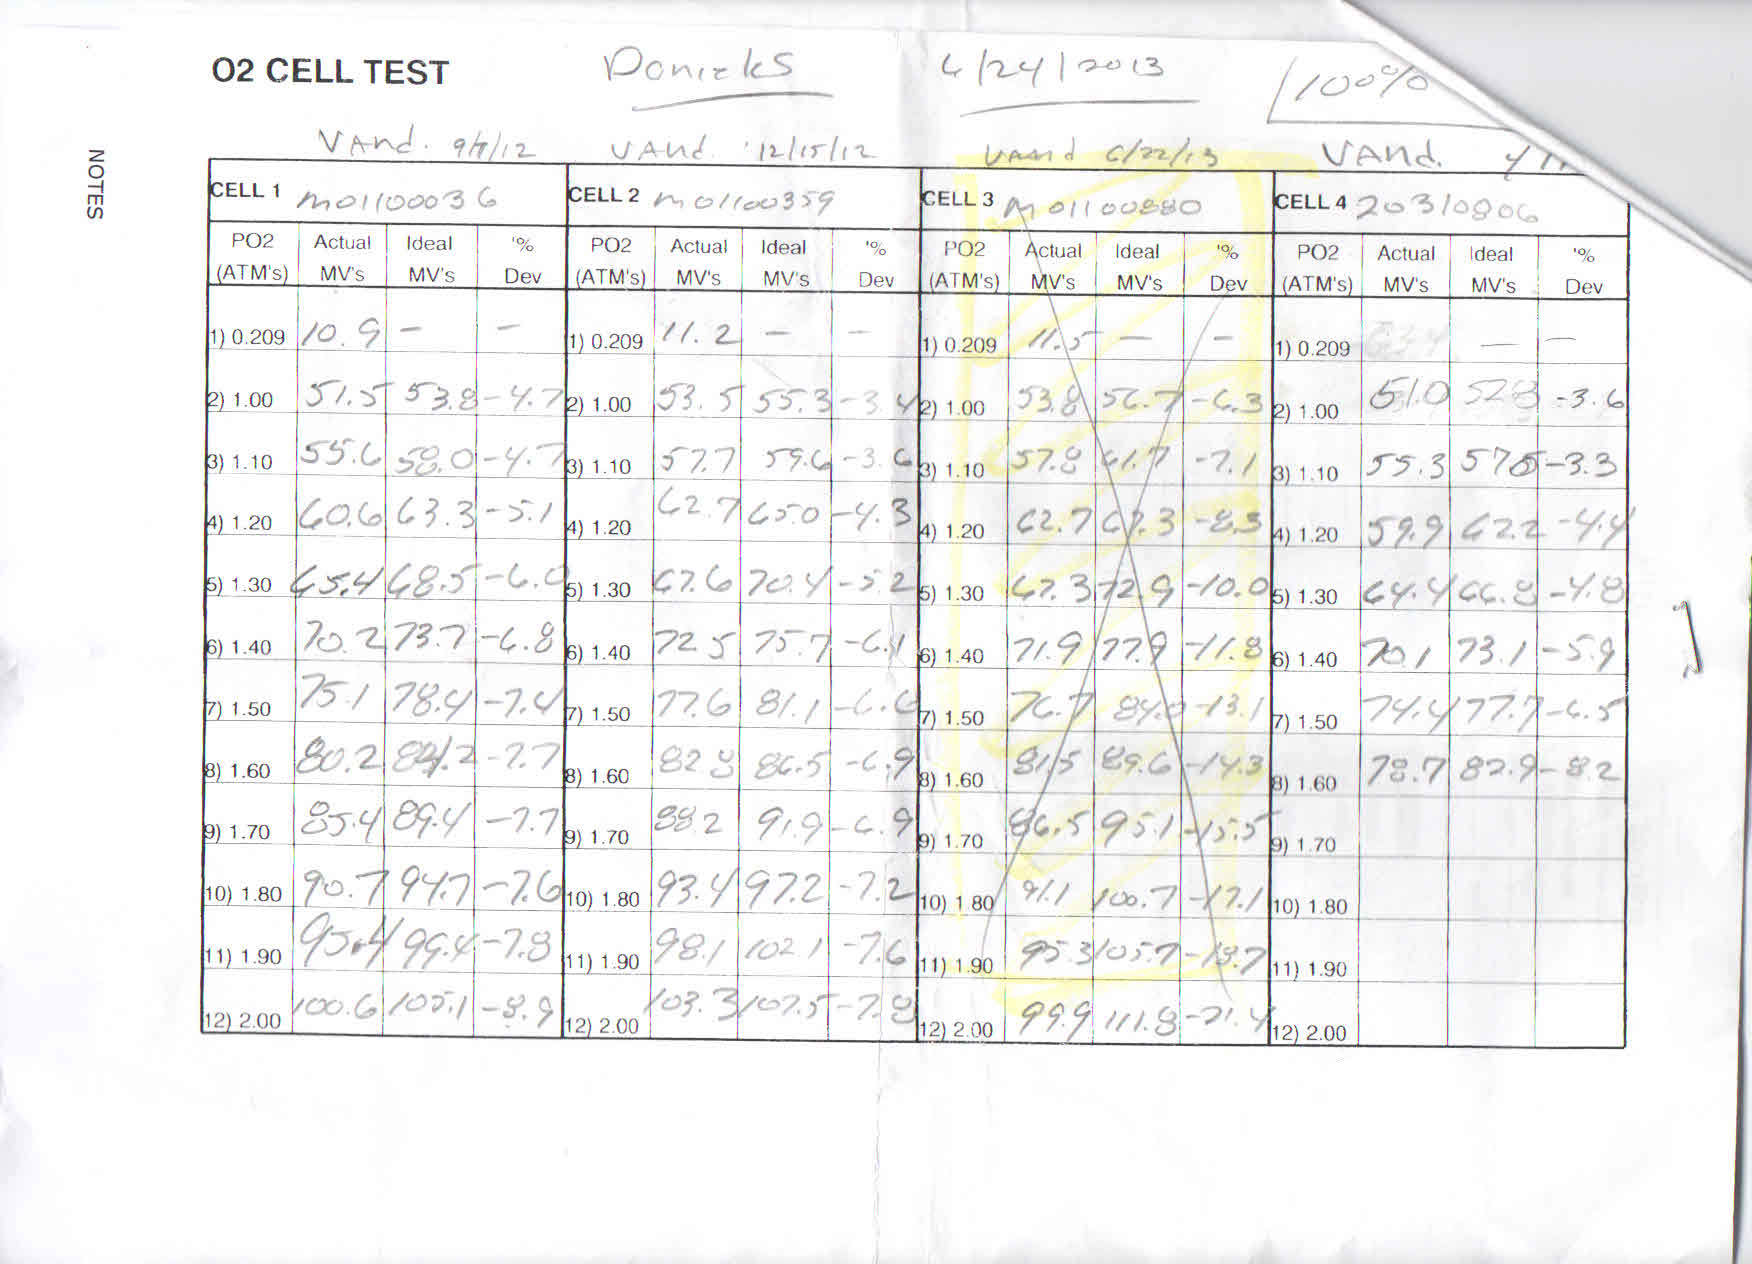 O2 CELL TEST 6/24/2013 100%
NOTES
VAnd. 9/7/12 VAnd. 12/15/12 VAnd 6/22/13 VAnd.
CELL 1 M01100036 CELL 2 M01100359 CELL 3 M01100880 CELL 4 20310806
PO2 Actual Ideal '% PO2 Actual Ideal '% PO2 Actual Ideal '% PO2 Actual Ideal '%
(ATM's) MV's MV's Dev (ATM's) MV's MV's Dev (ATM's) MV's MV's Dev (ATM's) MV's MV's Dev
1) 0.209 10.9 — — 1) 0.209 11.2 — — 1) 0.209 11.5 — — 1) 0.209 — —
2) 1.00 51.5 53.8 -4.7 2) 1.00 53.5 55.3 -3.4 2) 1.00 53.8 56.7 -6.3 2) 1.00 51.0 52.8 -3.6
3) 1.10 55.6 58.0 -4.7 3) 1.10 57.7 59.6 -3.6 3) 1.10 57.8 61.7 -7.1 3) 1.10 55.3 57.5 -3.3
4) 1.20 60.6 63.3 -5.1 4) 1.20 62.7 65.0 -4.3 4) 1.20 62.7 67.3 -8.3 4) 1.20 59.9 62.2 -4.4
5) 1.30 65.4 68.5 -6.0 5) 1.30 67.6 70.4 -5.2 5) 1.30 67.3 72.9 -10.0 5) 1.30 64.4 66.8 -4.8
6) 1.40 70.2 73.7 -6.8 6) 1.40 72.5 75.7 -6.1 6) 1.40 71.9 77.9 -11.8 6) 1.40 70.1 73.1 -5.9
7) 1.50 75.1 78.4 -7.4 7) 1.50 77.6 81.1 -6.6 7) 1.50 76.7 84.0 -13.1 7) 1.50 74.4 77.7 -6.5
8) 1.60 80.2 84.2 -7.7 8) 1.60 82.8 86.5 -6.9 8) 1.60 81.5 89.6 -14.3 8) 1.60 78.7 82.9 -8.2
9) 1.70 85.4 89.4 -7.7 9) 1.70 88.2 91.9 -6.9 9) 1.70 86.5 95.1 -15.5 9) 1.70
10) 1.80 90.7 94.7 -7.6 10) 1.80 93.4 97.2 -7.2 10) 1.80 91.1 100.7 -17.1 10) 1.80
11) 1.90 95.4 99.4 -7.8 11) 1.90 98.1 102.1 -7.6 11) 1.90 95.3 105.7 -18.7 11) 1.90
12) 2.00 100.6 105.1 -8.9 12) 2.00 103.3 107.5 -7.8 12) 2.00 99.9 111.8 -21.4 12) 2.00